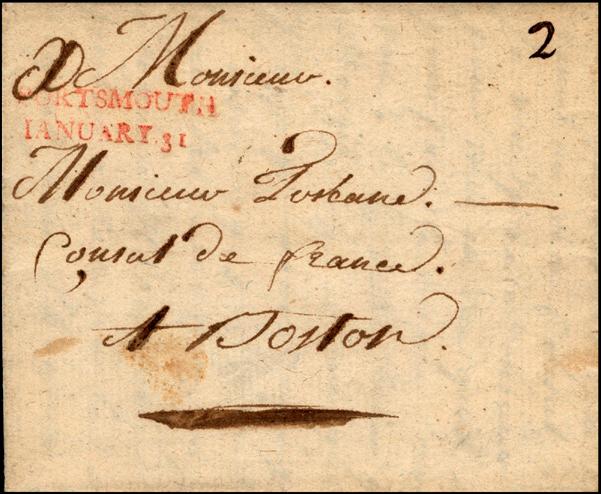 A Monsieur.
2
PORTSMOUTH
IANUARY 31
Monsieur Toscane.
Consul de france.
A Boston.